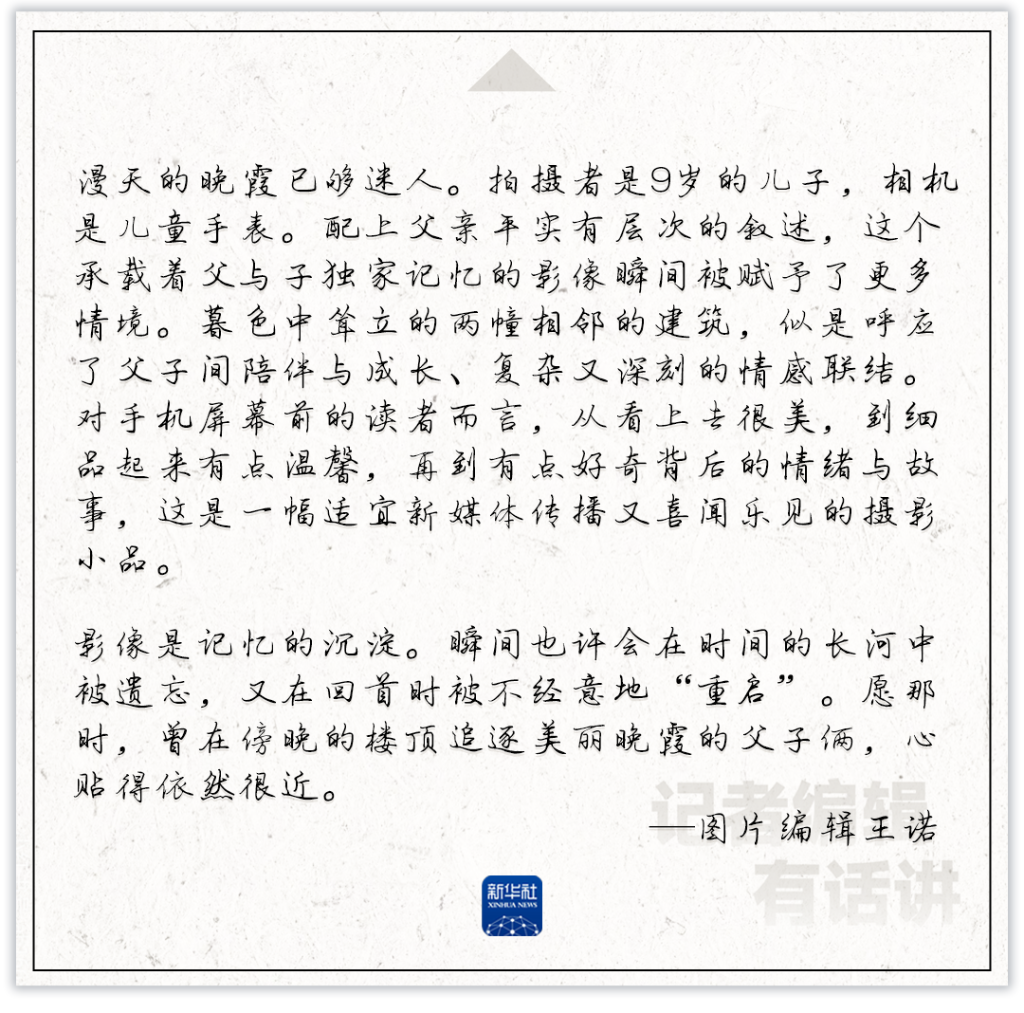 漫天的晚霞已够迷人。拍摄者是9岁的儿子，相机
是儿童手表。配上父亲平实有层次的叙述，这个
承载着父与子独家记忆的影像瞬间被赋予了更多
情境。暮色中耸立的两幢相邻的建筑，似是呼应
了父子间陪伴与成长、复杂又深刻的情感联结。
对手机屏幕前的读者而言，从看上去很美，到细
品起来有点温馨，再到有点好奇背后的情绪与故
事，这是一幅适宜新媒体传播又喜闻乐见的摄影
小品。
影像是记忆的沉淀。瞬间也许会在时间的长河中
被遗忘，又在回首时被不经意地“重启”。愿那
时，曾在傍晚的楼顶追逐美丽晚霞的父子俩，心
贴得依然很近。
记者编辑
——图片编辑王诺
有话讲
新华社
XINHUA NEWS